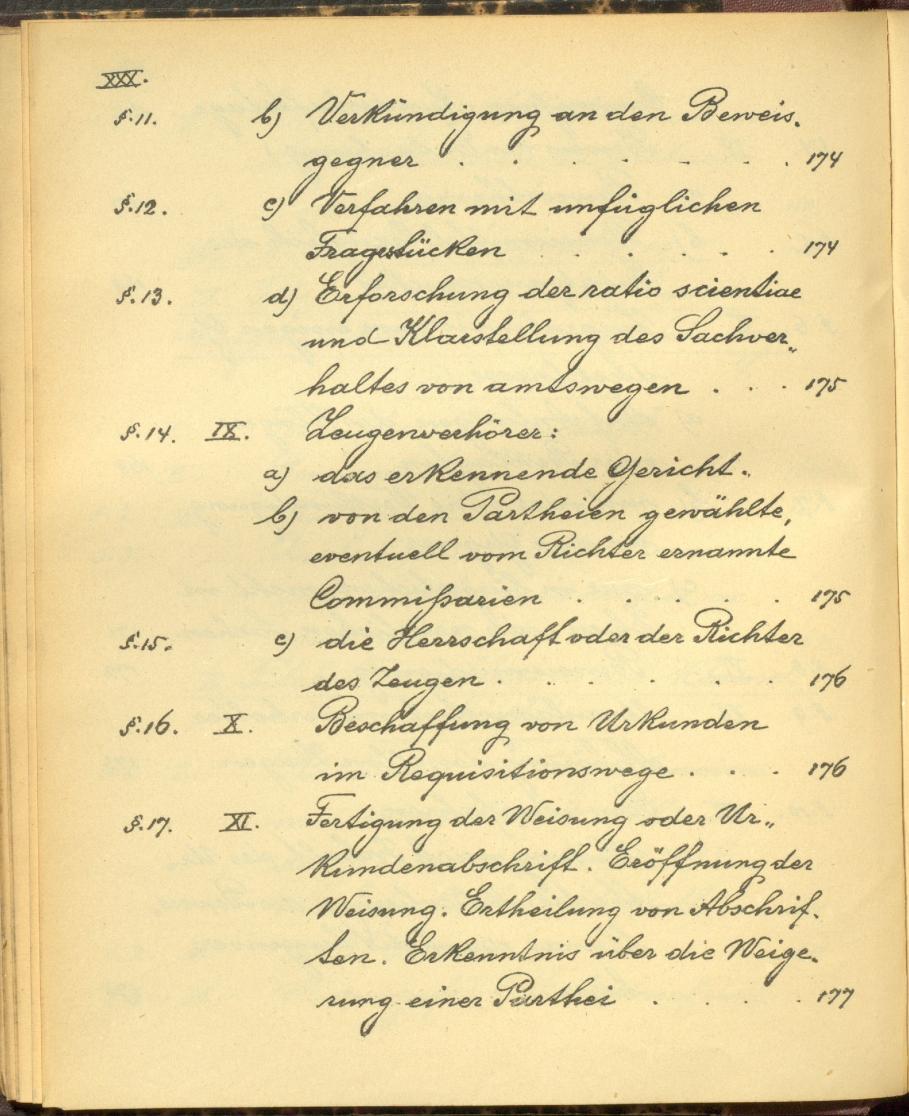 XXX.
§.11. b) Verkündigung an den Beweis-
gegner . . . . . . . 174
§.12. c) Verfahren mit unfüglichen
Fragstücken . . . . . . 174
§.13. d) Erforschung der ratio scientiae
und Klarstellung des Sachver„
haltes von amtswegen . . . 175
§.14. IX. Zeugenverhörer:
a) das erkennende Gericht.
b) von den Partheien gewählte,
eventuell vom Richter ernannte
Commißarien . . . . . 175
§.15. c) die Herrschaft oder der Richter
des Zeugen . . . . . . 176
§.16. X. Beschaffung von Urkunden
im Requisitionswege . . . 176
§.17. XI. Fertigung der Weisung oder Ur„
kundenabschrift. Eröffnung der
Weisung. Ertheilung von Abschrif-
ten. Erkenntnis über die Weige-
rung einer Parthei . . . . 177